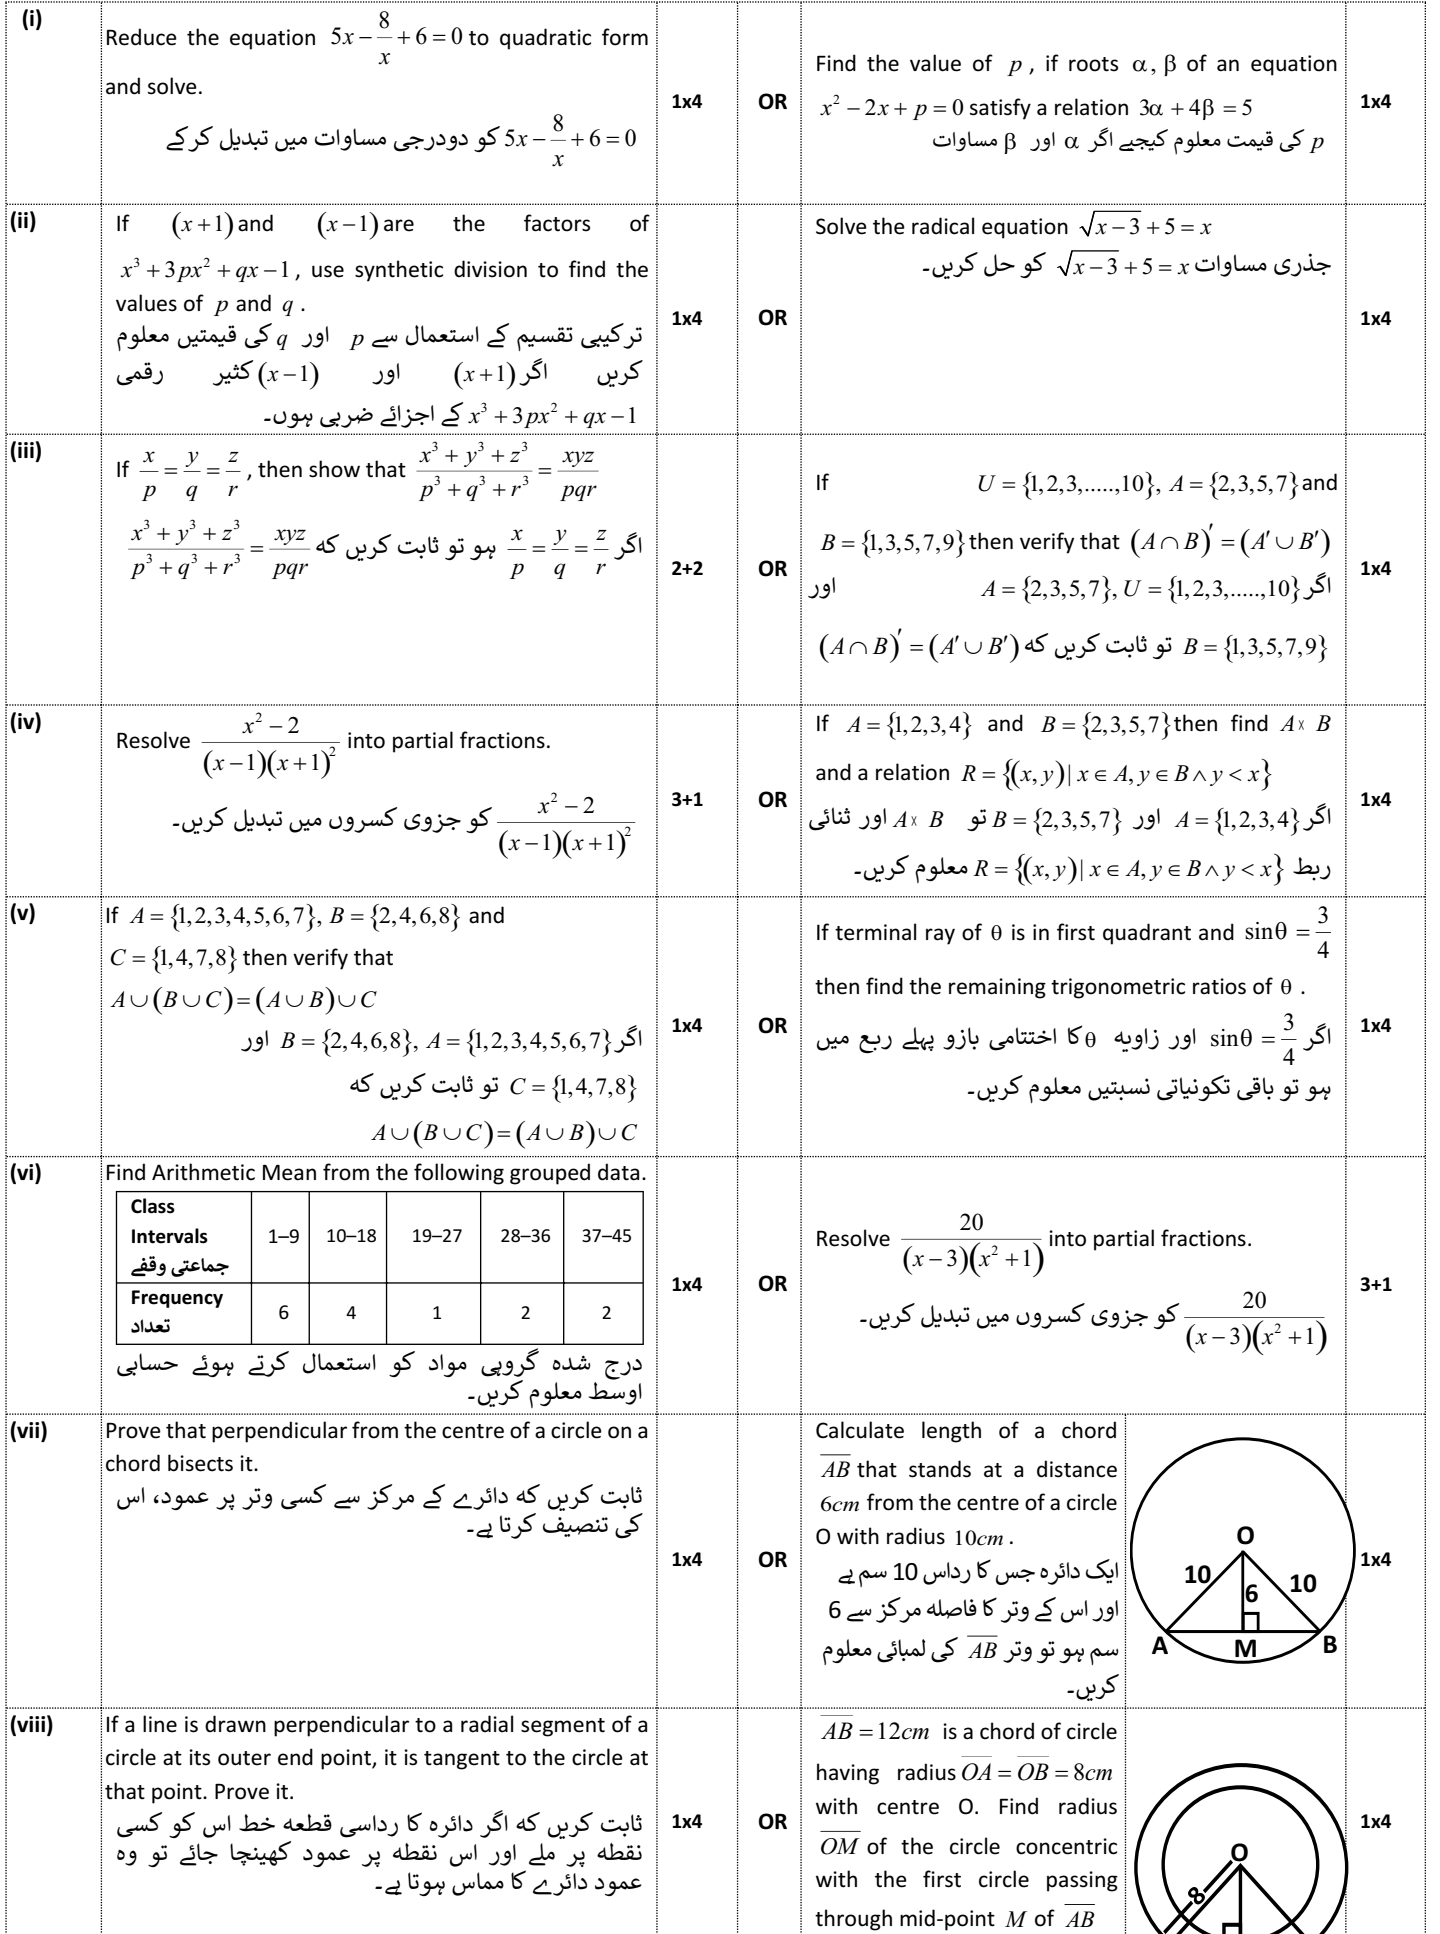 (i)
Reduce the equation 5x − 8/x + 6 = 0 to quadratic form
and solve.
5x − 8/x + 6 = 0 کو دودرجی مساوات میں تبدیل کرکے
1x4
OR
Find the value of p , if roots α, β of an equation
x² − 2x + p = 0 satisfy a relation 3α + 4β = 5
p کی قیمت معلوم کیجیے اگر α اور β مساوات
1x4
(ii)
If (x+1) and (x−1) are the factors of
x³ + 3px² + qx − 1 , use synthetic division to find the
values of p and q .
ترکیبی تقسیم کے استعمال سے p اور q کی قیمتیں معلوم
کریں اگر (x+1) اور (x−1) کثیر رقمی
x³ + 3px² + qx − 1 کے اجزائے ضربی ہوں۔
1x4
OR
Solve the radical equation √(x−3) + 5 = x
جذری مساوات √(x−3) + 5 = x کو حل کریں۔
1x4
(iii)
If x/p = y/q = z/r , then show that (x³ + y³ + z³)/(p³ + q³ + r³) = xyz/pqr
اگر x/p = y/q = z/r ہو تو ثابت کریں کہ (x³ + y³ + z³)/(p³ + q³ + r³) = xyz/pqr
2+2
OR
If U = {1,2,3,.....,10}, A = {2,3,5,7} and
B = {1,3,5,7,9} then verify that (A ∩ B)′ = (A′ ∪ B′)
اگر A = {2,3,5,7}, U = {1,2,3,.....,10} اور
B = {1,3,5,7,9} تو ثابت کریں کہ (A ∩ B)′ = (A′ ∪ B′)
1x4
(iv)
Resolve (x² − 2)/((x−1)(x+1)²) into partial fractions.
(x² − 2)/((x−1)(x+1)²) کو جزوی کسروں میں تبدیل کریں۔
3+1
OR
If A = {1,2,3,4} and B = {2,3,5,7} then find A × B
and a relation R = {(x, y)| x ∈ A, y ∈ B ∧ y < x}
اگر A = {1,2,3,4} اور B = {2,3,5,7} تو A × B اور ثنائی
ربط R = {(x, y)| x ∈ A, y ∈ B ∧ y < x} معلوم کریں۔
1x4
(v)
If A = {1,2,3,4,5,6,7}, B = {2,4,6,8} and
C = {1,4,7,8} then verify that
A ∪ (B ∪ C) = (A ∪ B) ∪ C
اگر B = {2,4,6,8}, A = {1,2,3,4,5,6,7} اور
C = {1,4,7,8} تو ثابت کریں کہ
A ∪ (B ∪ C) = (A ∪ B) ∪ C
1x4
OR
If terminal ray of θ is in first quadrant and sinθ = 3/4
then find the remaining trigonometric ratios of θ .
اگر sinθ = 3/4 اور زاویہ θ کا اختتامی بازو پہلے ربع میں
ہو تو باقی تکونیاتی نسبتیں معلوم کریں۔
1x4
(vi)
Find Arithmetic Mean from the following grouped data.
Class
Intervals
جماعتی وقفے
1–9 10–18 19–27 28–36 37–45
Frequency
تعداد
6 4 1 2 2
درج شدہ گروہی مواد کو استعمال کرتے ہوئے حسابی
اوسط معلوم کریں۔
1x4
OR
Resolve 20/((x−3)(x²+1)) into partial fractions.
20/((x−3)(x²+1)) کو جزوی کسروں میں تبدیل کریں۔
3+1
(vii)
Prove that perpendicular from the centre of a circle on a
chord bisects it.
ثابت کریں کہ دائرے کے مرکز سے کسی وتر پر عمود، اس
کی تنصیف کرتا ہے۔
1x4
OR
Calculate length of a chord
AB that stands at a distance
6cm from the centre of a circle
O with radius 10cm .
ایک دائرہ جس کا رداس 10 سم ہے
اور اس کے وتر کا فاصلہ مرکز سے 6
سم ہو تو وتر AB کی لمبائی معلوم
کریں۔
O
10
6
10
A
M
B
1x4
(viii)
If a line is drawn perpendicular to a radial segment of a
circle at its outer end point, it is tangent to the circle at
that point. Prove it.
ثابت کریں کہ اگر دائرہ کا رداسی قطعہ خط اس کو کسی
نقطہ پر ملے اور اس نقطہ پر عمود کھینچا جائے تو وہ
عمود دائرے کا مماس ہوتا ہے۔
1x4
OR
AB = 12cm is a chord of circle
having radius OA = OB = 8cm
with centre O. Find radius
OM of the circle concentric
with the first circle passing
through mid-point M of AB
O
8
1x4